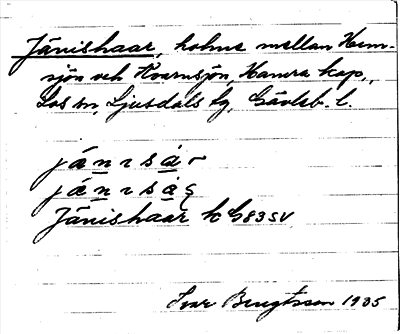 Jänishaar, holme mellan Hem-
sjön och Kvarnsjön, Hamra kap.,
Los sn, Ljusdals tg, Gävleb. l.
jänisár
jänisáς
Jänishaar k G83SV
Ivar Bengtsson 1935